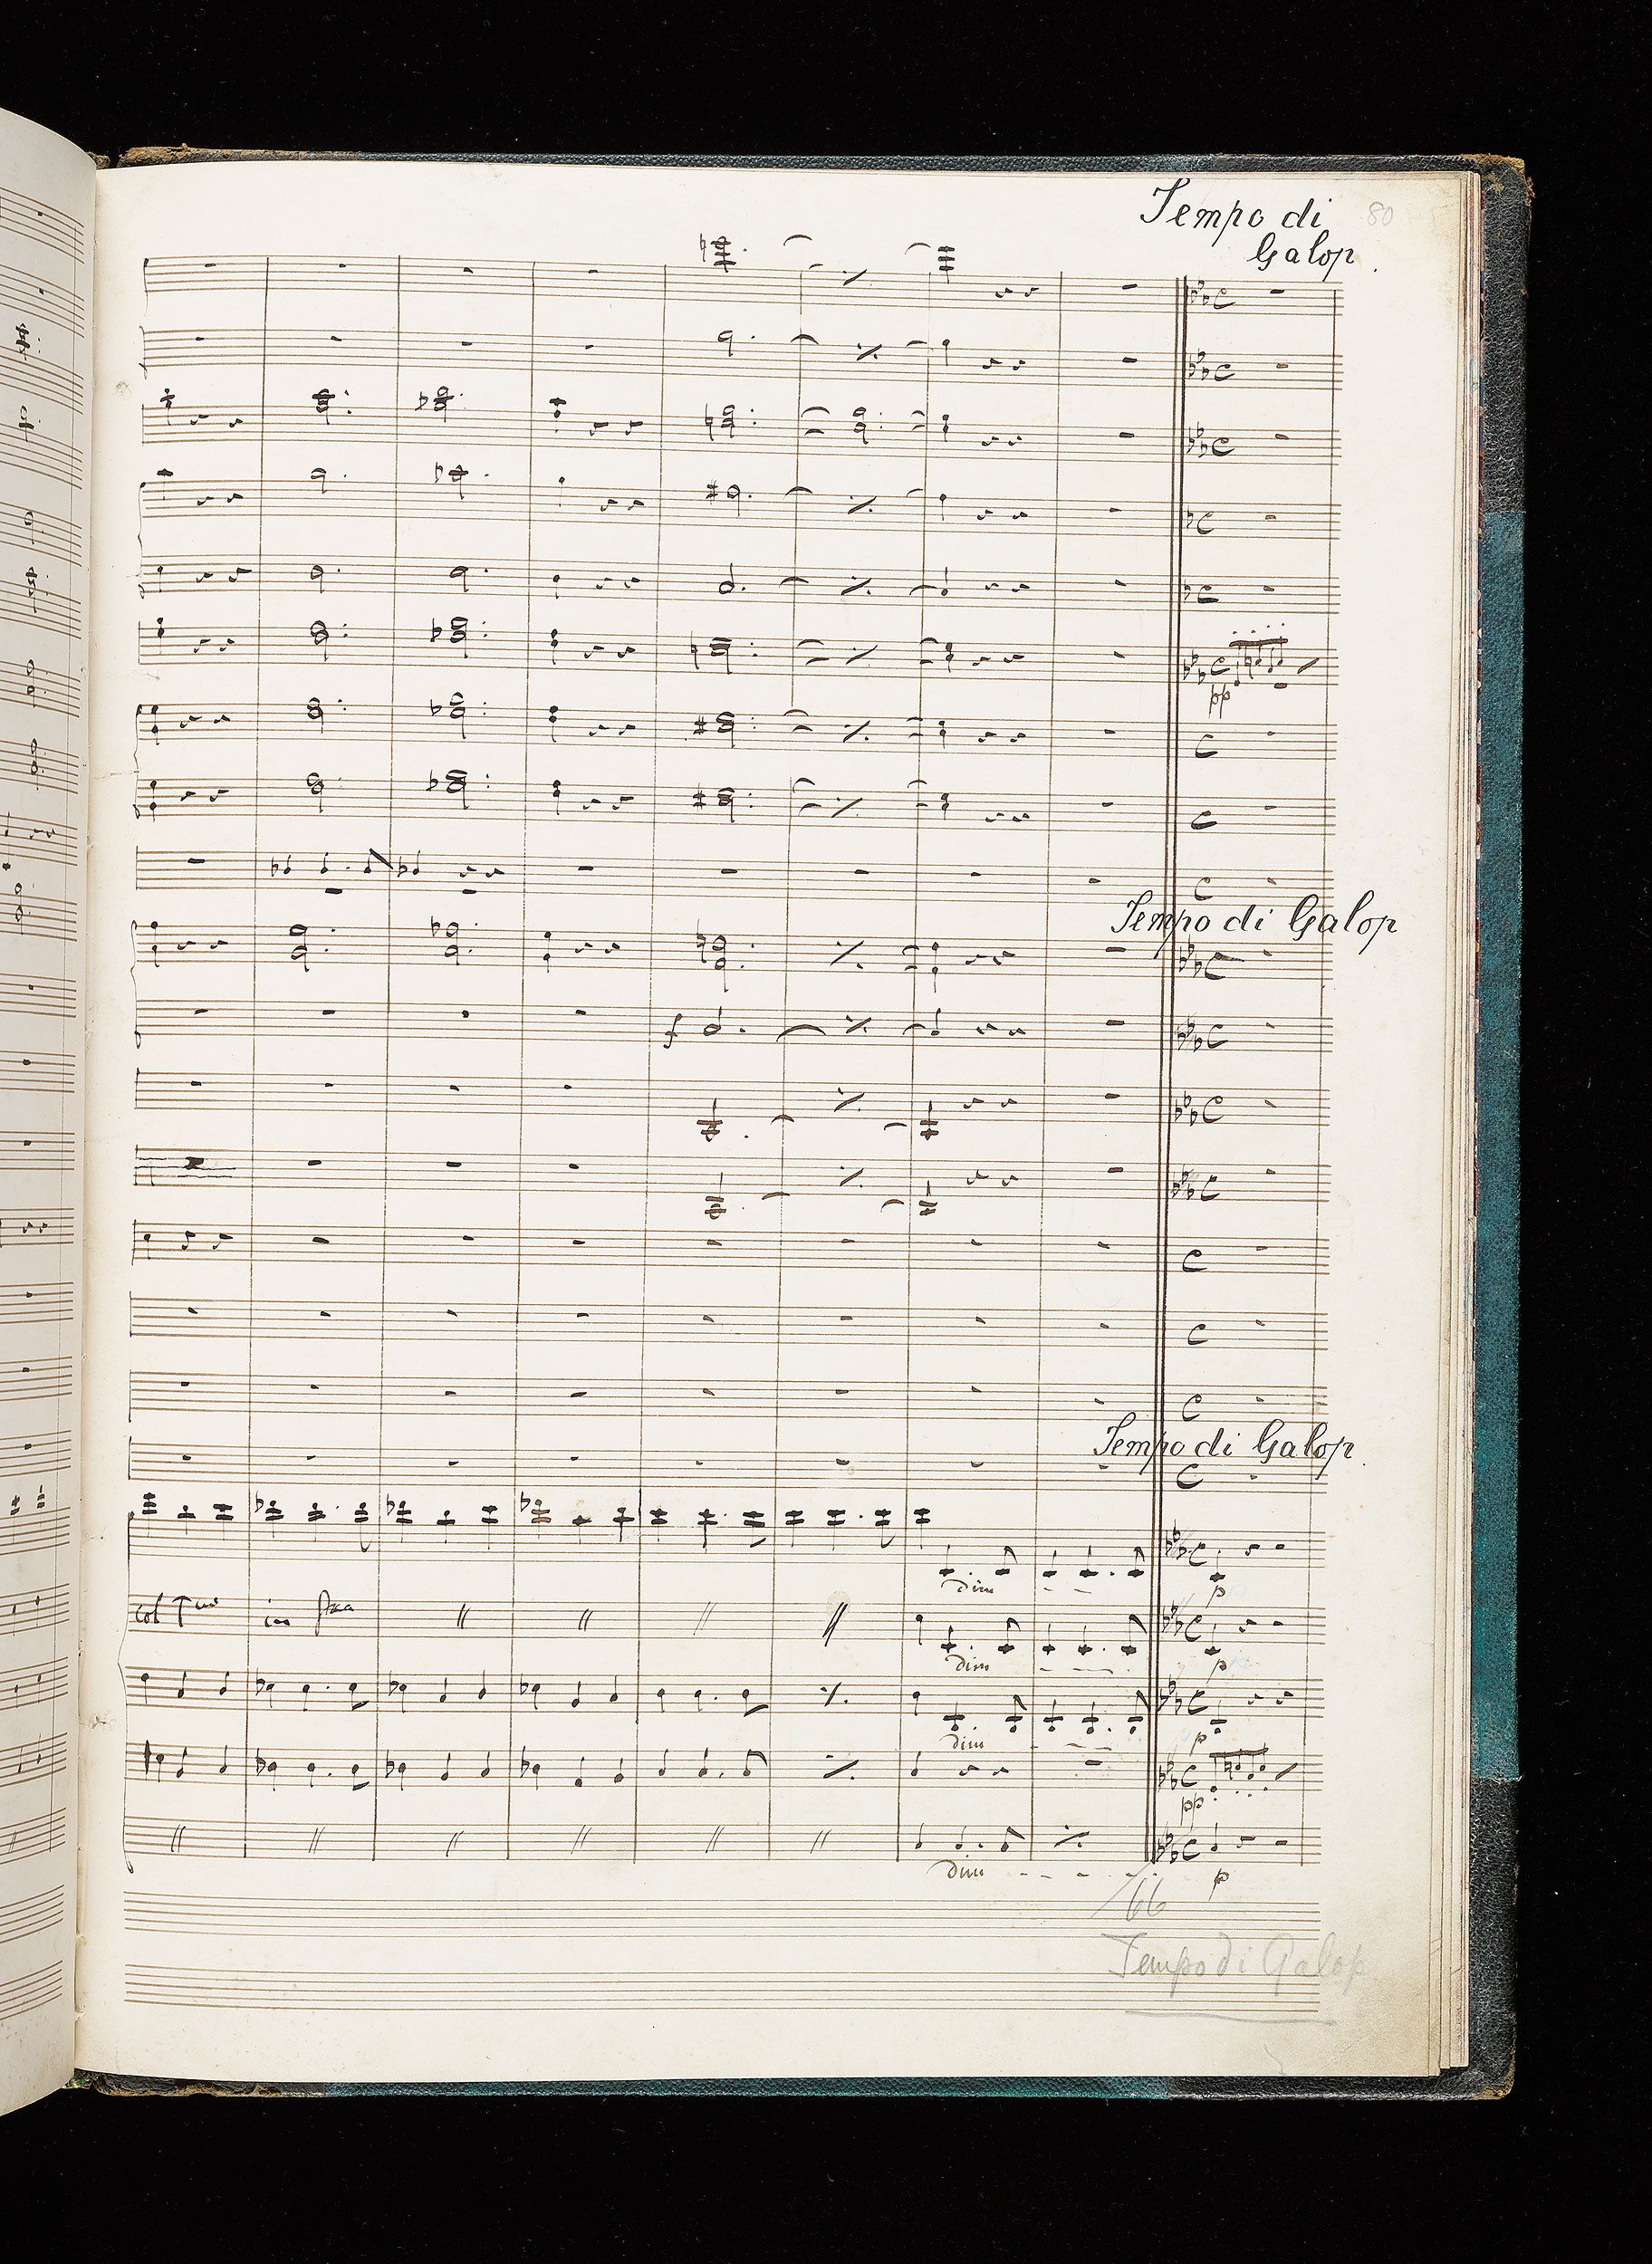 Tempo di 80
Galop.
pp
Tempo di Galop
f
Tempo di Galop.
dim p
col Imo in 8va
dim p
dim p
pp
dim p
66
Tempo di Galop